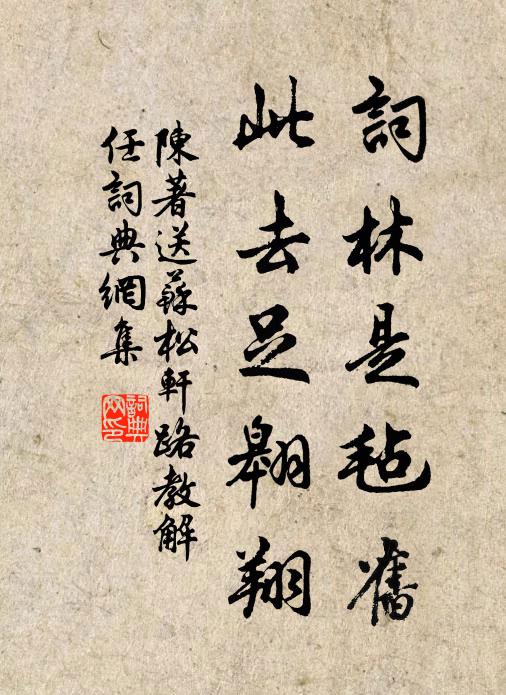 詞林是毡舊
此去足翱翔
陳著送蘇松軒路教解
任詞典網集
詞典網印